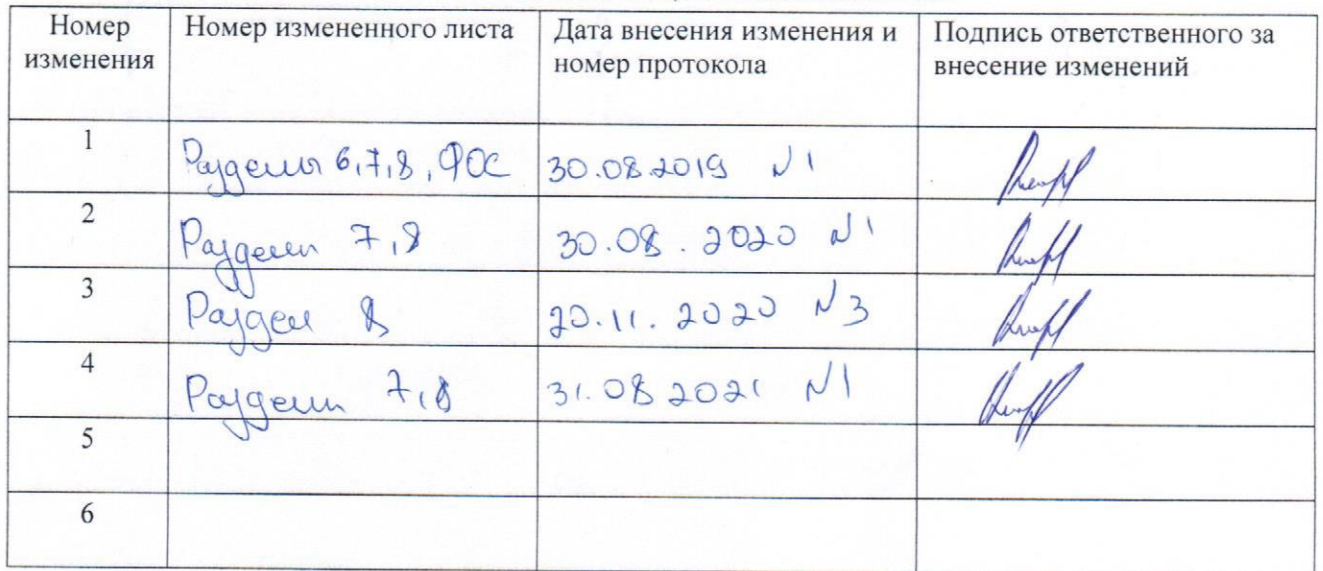 Номер изменения Номер измененного листа Дата внесения изменения и номер протокола Подпись ответственного за внесение изменений
1 Разделы 6,7,8, ФОС 30.08.2019 №1
2 Разделы 7,8 30.08.2020 №1
3 Раздел 8 20.11.2020 №3
4 Разделы 7,8 31.08.2021 №1
5
6